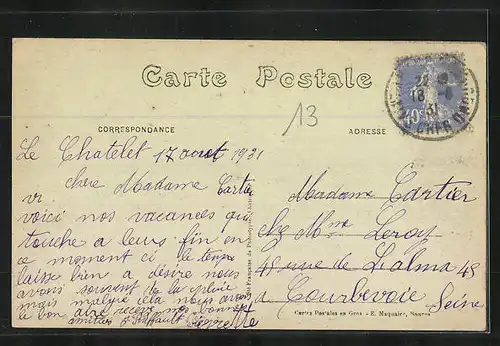 Carte Postale
13
CORRESPONDANCE
ADRESSE
40c
18
31
CHER
Le Chatelet 17 aout 1931
chere Madame Cartier
voici nos vacances qui
touche a leurs fin en
ce moment ci le temps
laisse bien a désire nous
avons souvent de la pluie
mais malgré cela nous avons
le bon aire recevez nos bonnes
amitiés
Madame Cartier
chez Mme Leroy
48 rue de L'alma 48
a Courbevoie Seine
Cartes Postales en Gros - E. Maquaire,